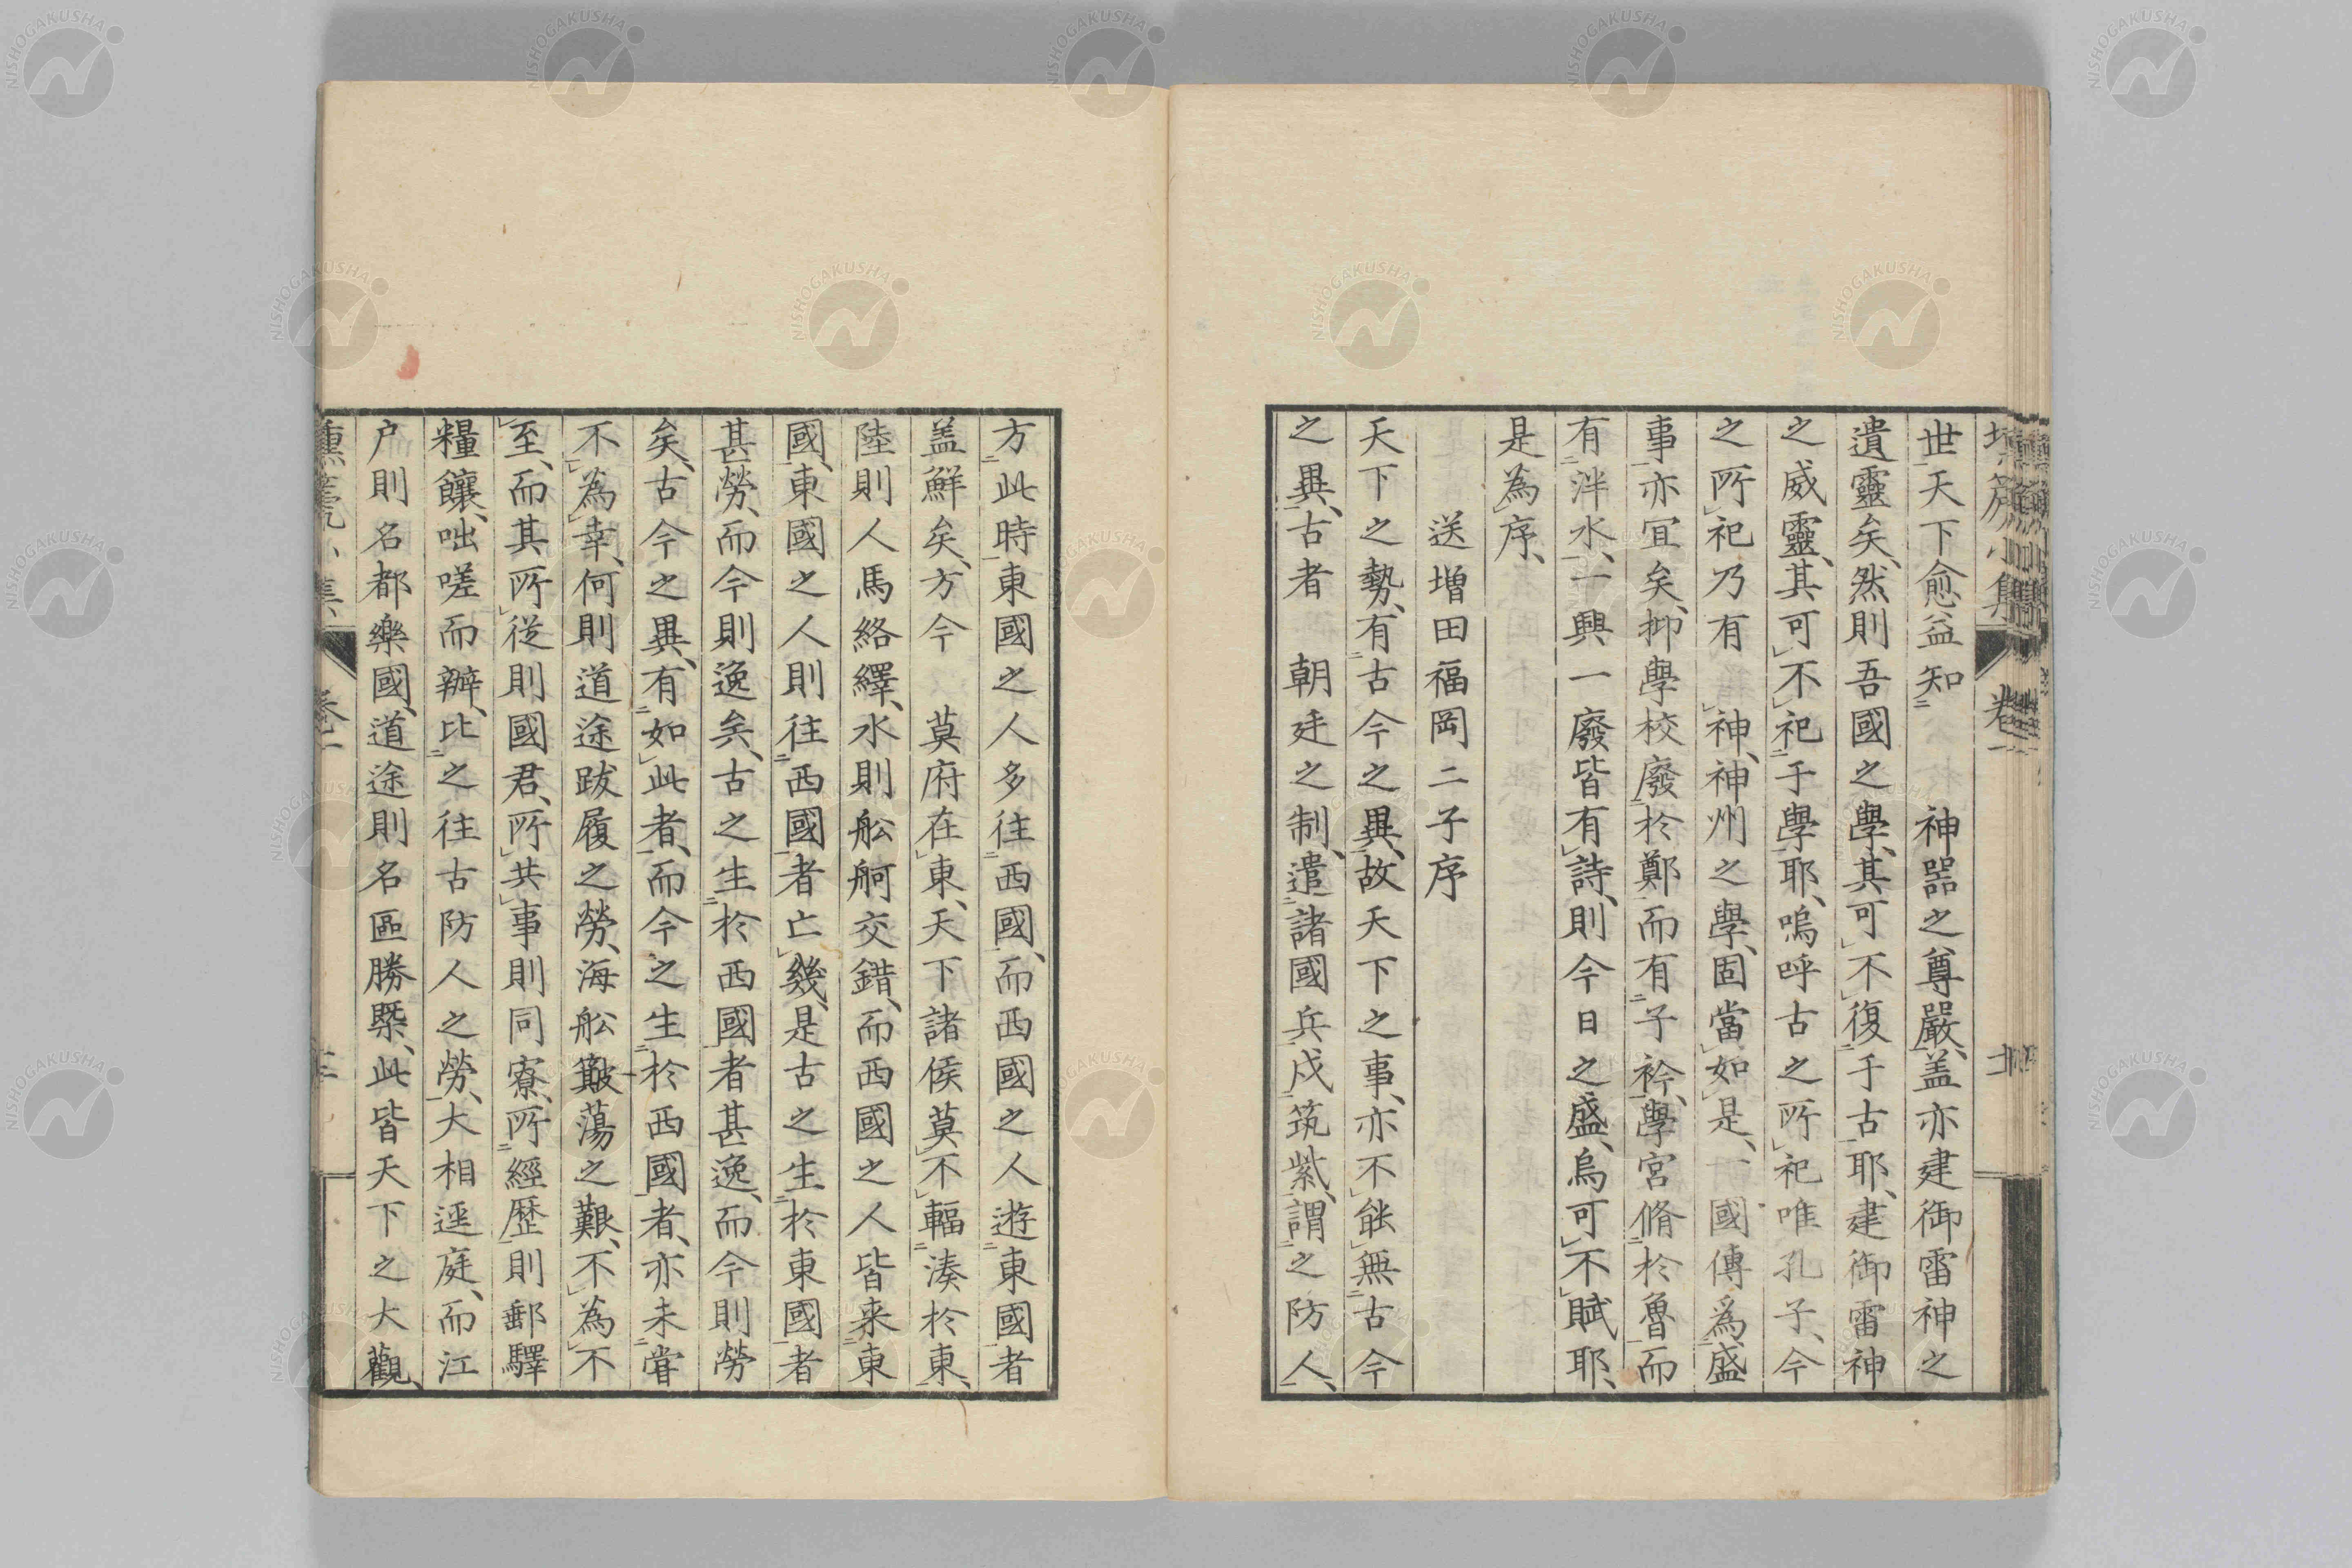 世天下愈益知 神器之尊嚴、盖亦建御雷神之
遺靈矣、然則吾國之學、其可不復于古耶、建御雷神
之威靈、其可不祀于學耶、嗚呼古之所祀唯孔子、今
之所祀乃有 神、神州之學、固當如是、 國傳爲盛
事亦宜矣、抑學校廢於鄭而有子衿、學宮脩於魯而
有泮水、一興一廢皆有詩、則今日之盛、烏可不賦耶、
是為序、
送增田福岡二子序
天下之勢、有古今之異、故天下之事、亦不能無古今
之異、古者 朝廷之制、遣諸國兵、戍筑紫、謂之防人、
方此時東國之人多往西國、而西國之人遊東國者
盖鮮矣、方今 莫府在東、天下諸侯莫不輻湊於東、
陸則人馬絡繹、水則舩舸交錯、而西國之人皆来東
國、東國之人則往西國者亡幾、是古之生於東國者
甚勞、而今則逸矣、古之生於西國者甚逸、而今則勞
矣、古今之異、有如此者、而今之生於西國者、亦未甞
不為幸、何則道途跋履之勞、海舩簸蕩之艱、不為不
至、而其所從則國君、所共事則同寮、所經歷則郵驛
糧饟、咄嗟而辦、比之往古防人之勞、大相逕庭、而江
户則名都樂國、道途則名區勝槩、此皆天下之大觀、
卷一